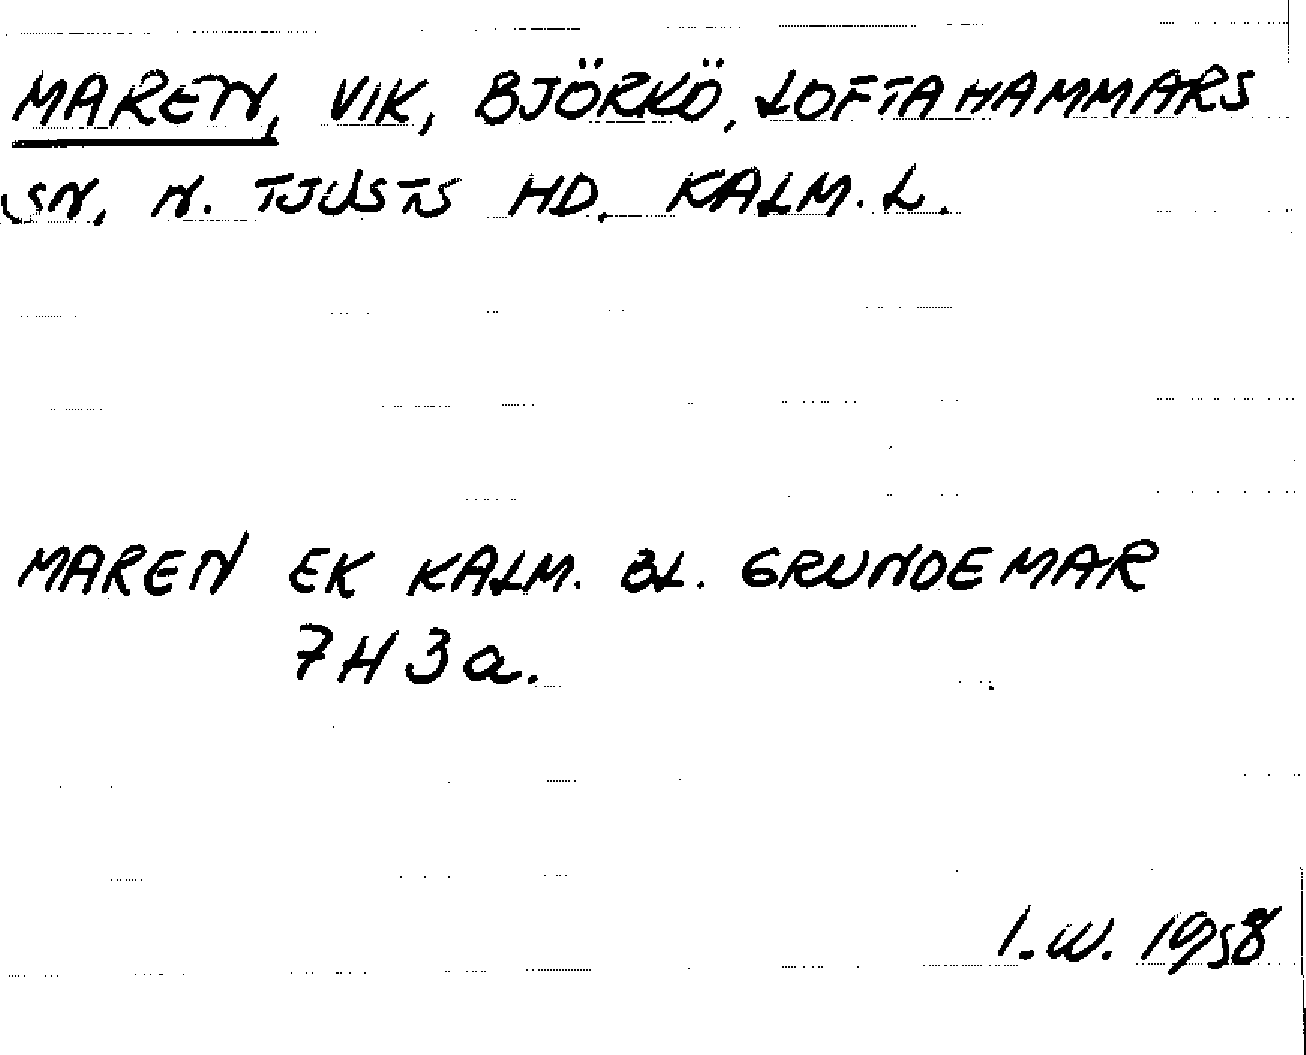 MAREN, VIK, BJÖRKÖ, LOFTAHAMMARS
SN, N. TJUSTS HD. KALM. L.
MAREN EK KALM. BL. GRUNDEMAR
7H3a.
I.W. 1958